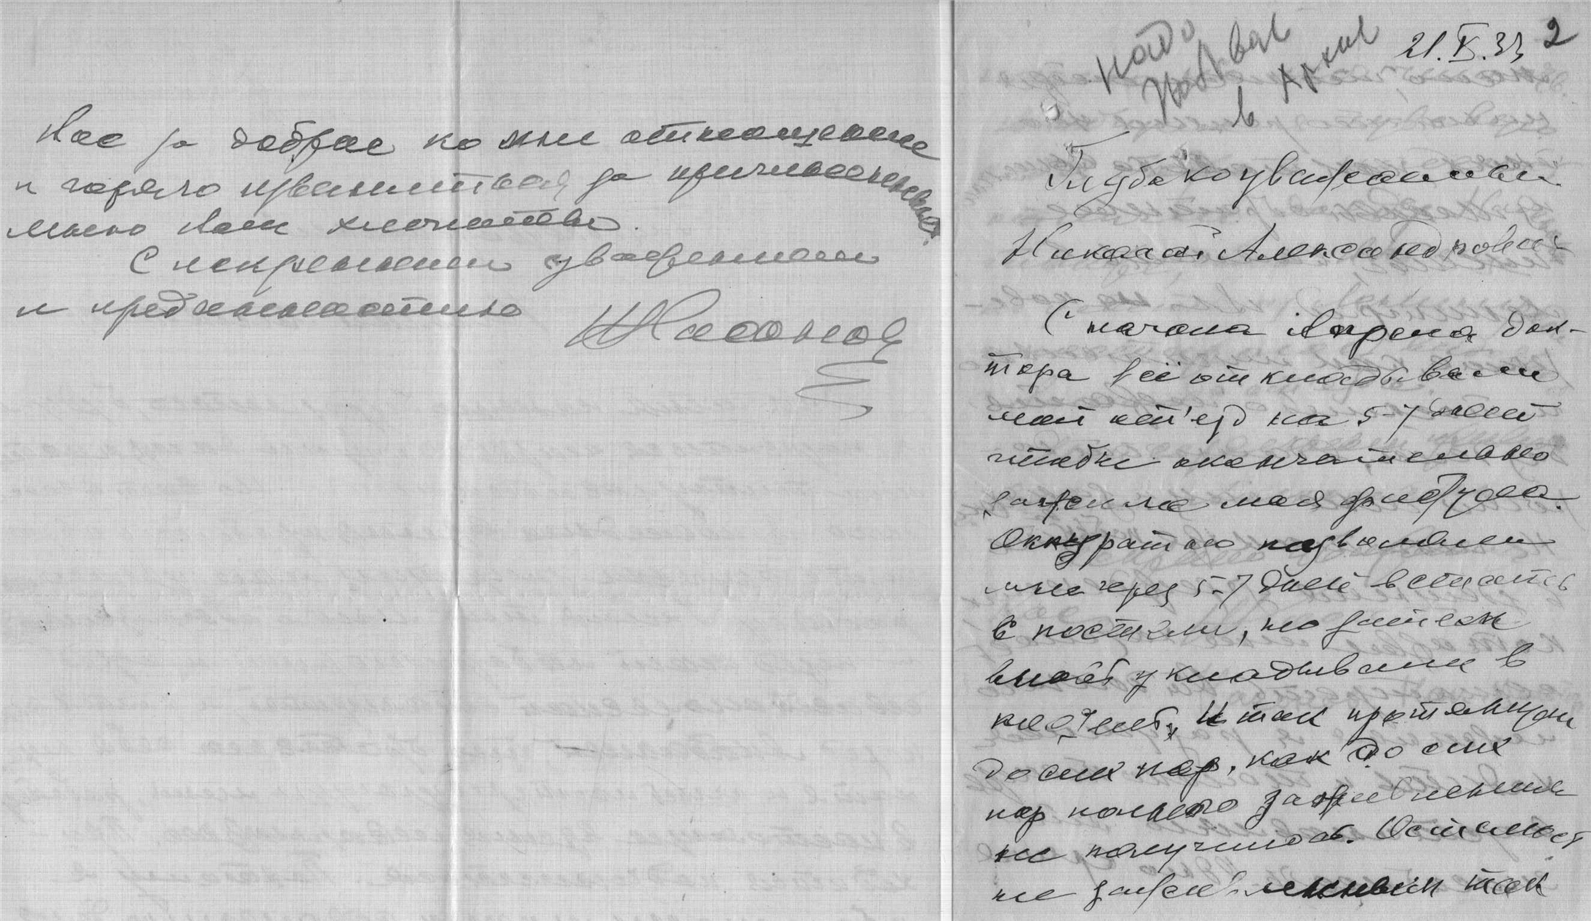 Вас за доброе ко мне отношение
и горячо извиниться за причиненные
мною Вам хлопоты.
С искренним уважением
и преданностью
надо
в Архив
21.X.33 2
Глубокоуважаемый
Николай Александрович
С начала апреля док-
тора всё откладывали
мой от'езд на 5-7 дней
чтобы окончательно
зажила моя фистула.
Оккуратно позволяли
мне через 5-7 дней вставать
с постели, но затем
вновь укладывали в
неё. И так протянули
до сих пор, как до сих
пор полного заживления
не получилось. Осталась
не зажившим так